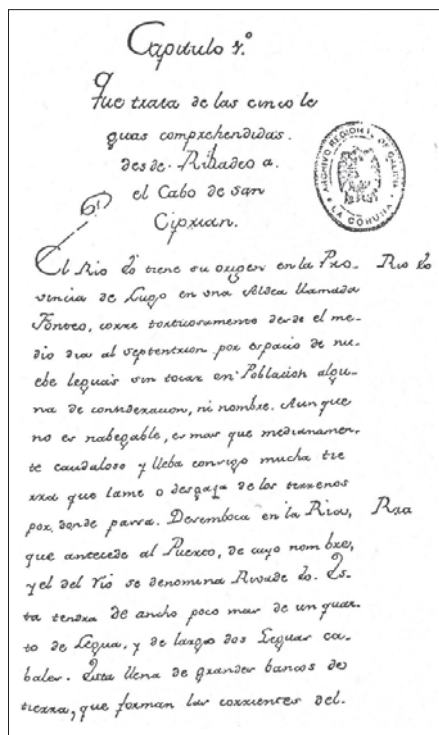 Capitulo 1º
Que trata de las cinco le
guas comprehendidas.
desde Ribadeo a.
el Cabo de san
Ciprian.
ARCHIVO REGIONAL DE GALICIA
LA CORUÑA
El Rio Eo tiene su origen en la Pro-
Rio Eo
vincia de Lugo en una Aldea llamada
Fonteo, corre tortuosamente desde el me-
dio dia al septentrion por espacio de nu-
ebe leguas sin tocar en Poblacion algu-
na de consideracion, ni nombre. Aun que
no es nabegable, es mas que medianamen-
te caudaloso y lleba consigo mucha tie
rra que lame o desgaja de los terrenos
por donde passa. Desemboca en la Ria,
Ria
que antecede al Puerto, de cuyo nombre,
y el del rio se denomina Rivade Eo. Es-
ta tendra de ancho poco mas de un quar-
to de Legua, y de largo dos Leguas ca-
bales. Esta llena de grandes bancos de
tierra, que forman las corrientes del.